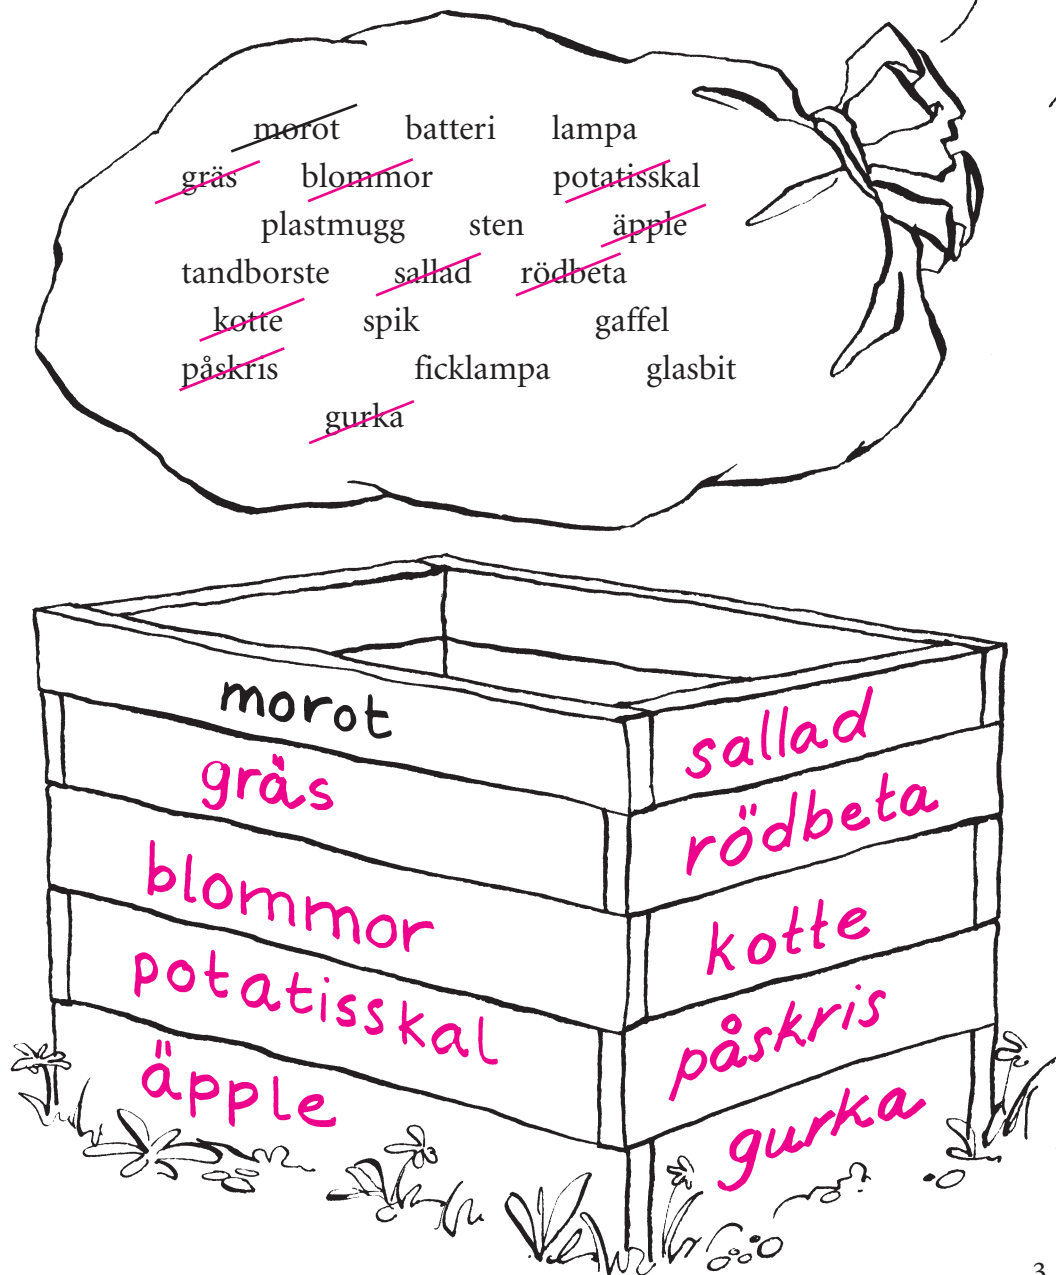 morot batteri lampa
gräs blommor potatisskal
plastmugg sten äpple
tandborste sallad rödbeta
kotte spik gaffel
påskris ficklampa glasbit
gurka
morot
gräs
blommor
potatisskal
äpple
sallad
rödbeta
kotte
påskris
gurka
3